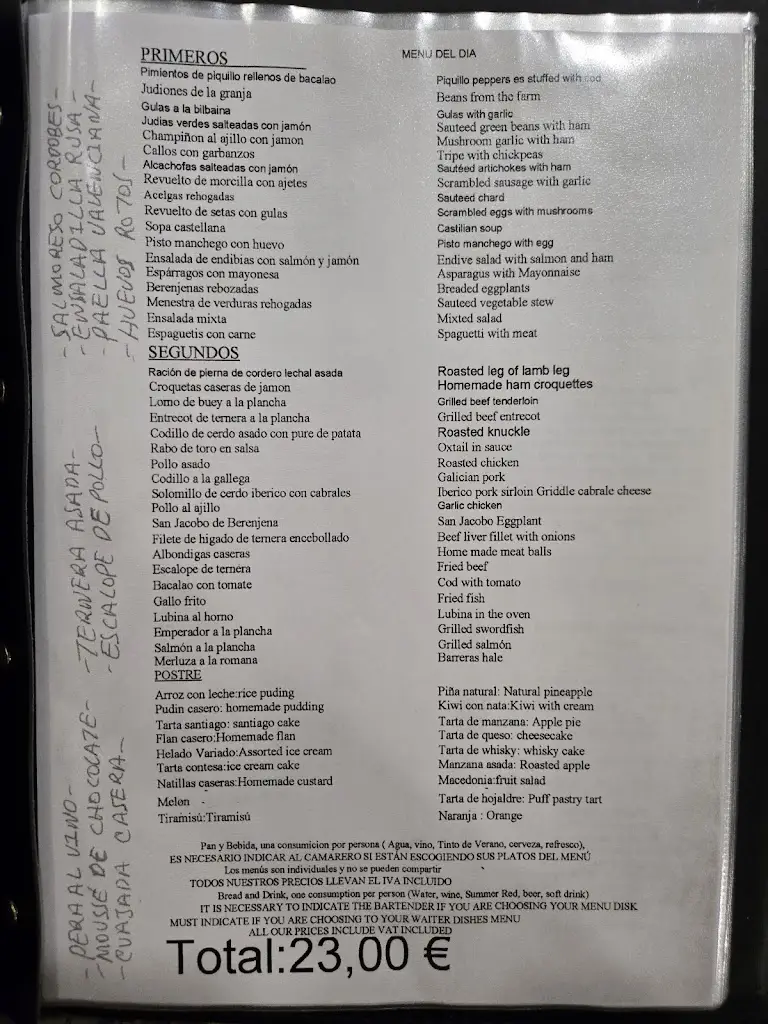 MENU DEL DIA
PRIMEROS
Pimientos de piquilio rellenos de bacalao
Judiones de la granja
Gulas a la bilbaina
Judias verdes salteadas con jamón
Champiñon al ajillo con jamon
Callos con garbanzos
Alcachofas salteadas con jamón
Revuelto de morcilla con ajetes
Acelgas rehogadas
Revuelto de setas con gulas
Sopa castellana
Pisto manchego con huevo
Ensalada de endibias con salmón y jamón
Espárragos con mayonesa
Berenjenas rebozadas
Menestra de verduras rehogadas
Ensalada mixta
Espaguetis con carne
Piquillo peppers es stuffed with cod
Beans from the farm
Gulas with garlic
Sauteed green beans with ham
Mushroom garlic with ham
Tripe with chickpeas
Sautéed artichokes with ham
Scrambled sausage with garlic
Sauteed chard
Scrambled eggs with mushrooms
Castilian soup
Pisto manchego with egg
Endive salad with salmon and ham
Asparagus with Mayonnaise
Breaded eggplants
Sauteed vegetable stew
Mixted salad
Spaguetti with meat
SEGUNDOS
Ración de pierna de cordero lechal asada
Croquetas caseras de jamon
Lomo de buey a la plancha
Entrecot de ternera a la plancha
Codillo de cerdo asado con pure de patata
Rabo de toro en salsa
Pollo asado
Codillo a la gallega
Solomillo de cerdo iberico con cabrales
Pollo al ajillo
San Jacobo de Berenjena
Filete de higado de ternera encebollado
Albondigas caseras
Escalope de ternera
Bacalao con tomate
Gallo frito
Lubina al horno
Emperador a la plancha
Salmón a la plancha
Merluza a la romana
Roasted leg of lamb leg
Homemade ham croquettes
Grilled beef tenderloin
Grilled beef entrecot
Roasted knuckle
Oxtail in sauce
Roasted chicken
Galician pork
Iberico pork sirloin Griddle cabrale cheese
Garlic chicken
San Jacobo Eggplant
Beef liver fillet with onions
Home made meat balls
Fried beef
Cod with tomato
Fried fish
Lubina in the oven
Grilled swordfish
Grilled salmón
Barreras hale
POSTRE
Arroz con leche:rice puding
Pudin casero: homemade pudding
Tarta santiago: santiago cake
Flan casero:Homemade flan
Helado Variado:Assorted ice cream
Tarta contesa:ice cream cake
Natillas caseras:Homemade custard
Melon -
Tiramisú:Tiramisú
Piña natural: Natural pineapple
Kiwi con nata:Kiwi with cream
Tarta de manzana: Apple pie
Tarta de queso: cheesecake
Tarta de whisky: whisky cake
Manzana asada: Roasted apple
Macedonia:fruit salad
Tarta de hojaldre: Puff pastry tart
Naranja : Orange
Pan y Bebida, una consumicion por persona ( Agua, vino, Tinto de Verano, cerveza, refresco),
ES NECESARIO INDICAR AL CAMARERO SI ESTÁN ESCOGIENDO SUS PLATOS DEL MENÚ
Los menús son individuales y no se pueden compartir
TODOS NUESTROS PRECIOS LLEVAN EL IVA INCLUIDO
Bread and Drink, one consumption per person (Water, wine, Summer Red, beer, soft drink)
IT IS NECESSARY TO INDICATE THE BARTENDER IF YOU ARE CHOOSING YOUR MENU DISK
MUST INDICATE IF YOU ARE CHOOSING TO YOUR WAITER DISHES MENU
ALL OUR PRICES INCLUDE VAT INCLUDED
Total:23,00 €
-SALMORESO CORDOBES-
-ENSALADILLA RUSA-
-PAELLA VALENCIANA-
-HUEVOS ROTOS-
-TERNERA ASADA-
-ESCALOPE DE POLLO-
-PERA AL VINO-
-MOUSSE DE CHOCOLATE-
-CUAJADA CASERA-